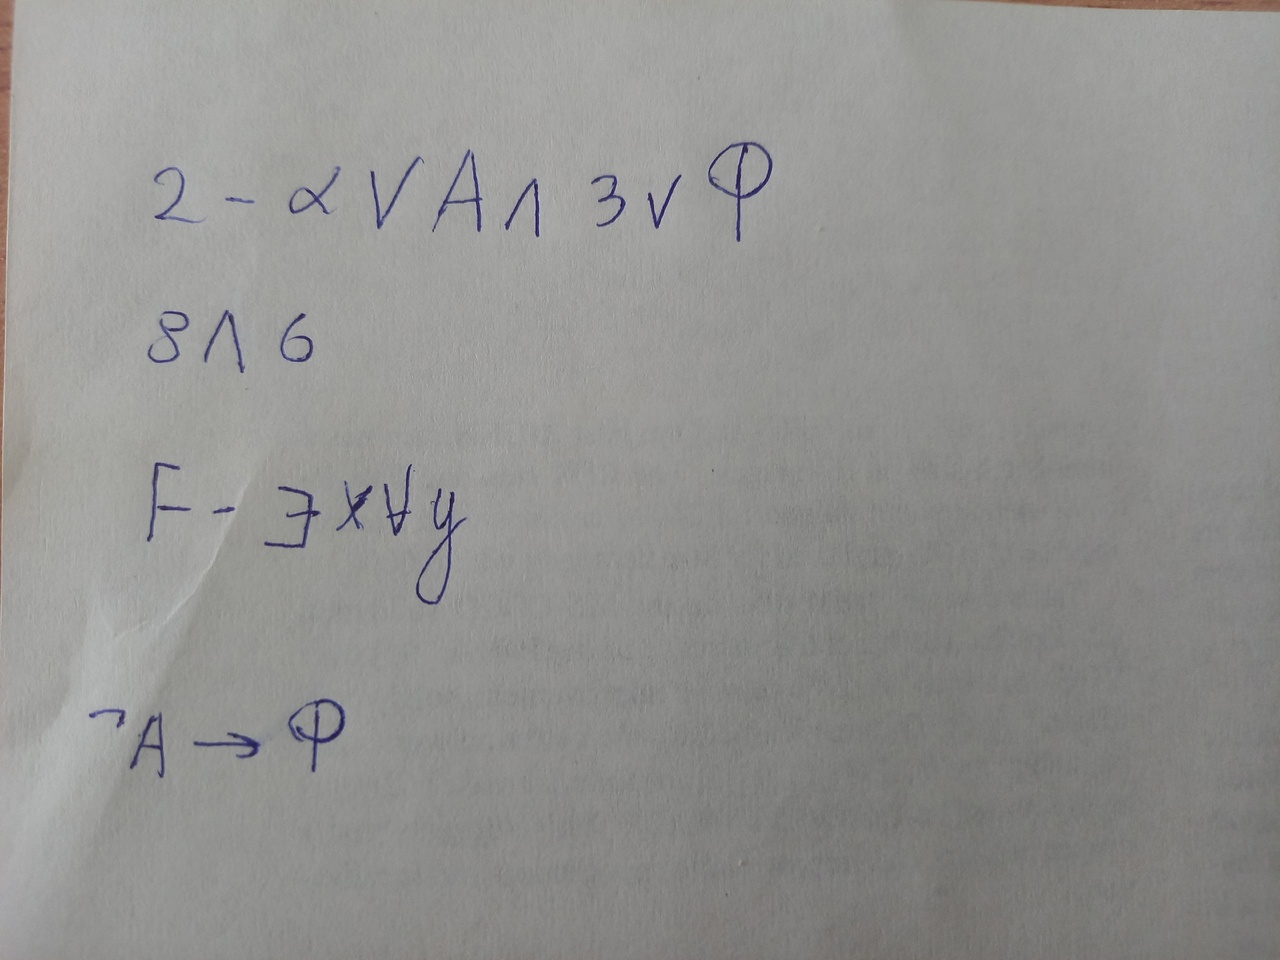 2 - α ∨ A ∧ 3 ∨ Φ
8 ∧ 6
F - ∃x∀y
¬A → Φ